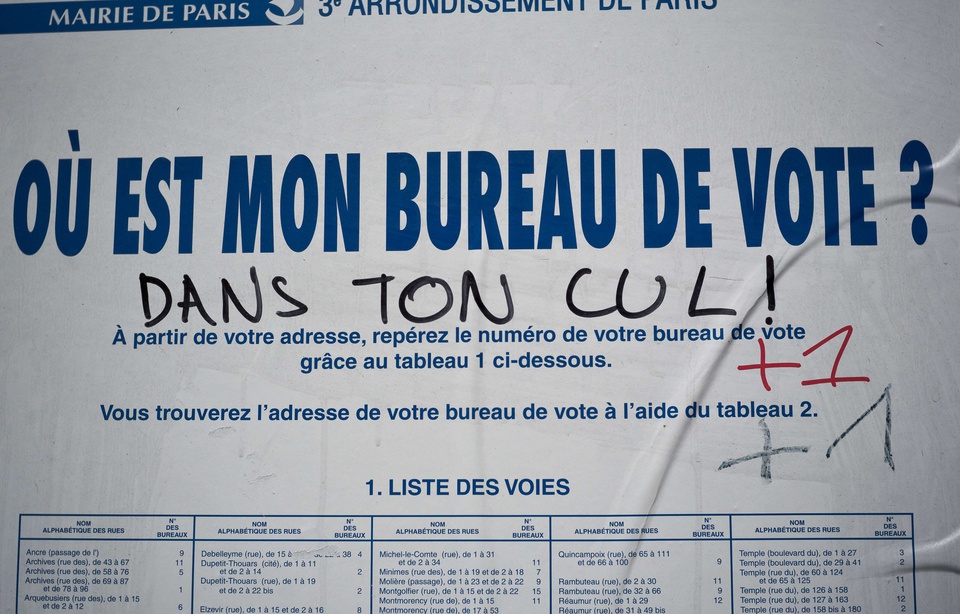 MAIRIE DE PARIS
3e ARRONDISSEMENT DE PARIS
OÙ EST MON BUREAU DE VOTE ?
DANS TON CUL !
À partir de votre adresse, repérez le numéro de votre bureau de vote
grâce au tableau 1 ci-dessous.
+1
Vous trouverez l'adresse de votre bureau de vote à l'aide du tableau 2.
+1
1. LISTE DES VOIES
NOM ALPHABÉTIQUE DES RUES N° DES BUREAUX
Ancre (passage de l') 9
Archives (rue des), de 43 à 67 11
Archives (rue des), de 58 à 76 5
Archives (rue des), de 69 à 87
et de 78 à 96 1
Arquebusiers (rue des), de 1 à 15
et de 2 à 12 6
NOM ALPHABÉTIQUE DES RUES N° DES BUREAUX
Debelleyme (rue), de 15 à 38 4
Dupetit-Thouars (cité), de 1 à 11
et de 2 à 14 2
Dupetit-Thouars (rue), de 1 à 19
et de 2 à 22 bis 2
Elzevir (rue), de 1 à 15 et de 2 à 16 8
NOM ALPHABÉTIQUE DES RUES N° DES BUREAUX
Michel-le-Comte (rue), de 1 à 31
et de 2 à 34 11
Minimes (rue des), de 1 à 19 et de 2 à 18 7
Molière (passage), de 1 à 23 et de 2 à 22 9
Montgolfier (rue), de 1 à 15 et de 2 à 22 15
Montmorency (rue de), de 1 à 15 11
Montmorency (rue de), de 17 à 53
NOM ALPHABÉTIQUE DES RUES N° DES BUREAUX
Quincampoix (rue), de 65 à 111
et de 66 à 100 9
Rambuteau (rue), de 2 à 30 11
Rambuteau (rue), de 32 à 66 9
Réaumur (rue), de 1 à 29 12
Réaumur (rue), de 31 à 49 bis
NOM ALPHABÉTIQUE DES RUES N° DES BUREAUX
Temple (boulevard du), de 1 à 27 3
Temple (boulevard du), de 29 à 41 2
Temple (rue du), de 60 à 124
et de 65 à 125 11
Temple (rue du), de 126 à 158 1
Temple (rue du), de 127 à 163 12
Temple (rue du), de 158 bis à 180 2